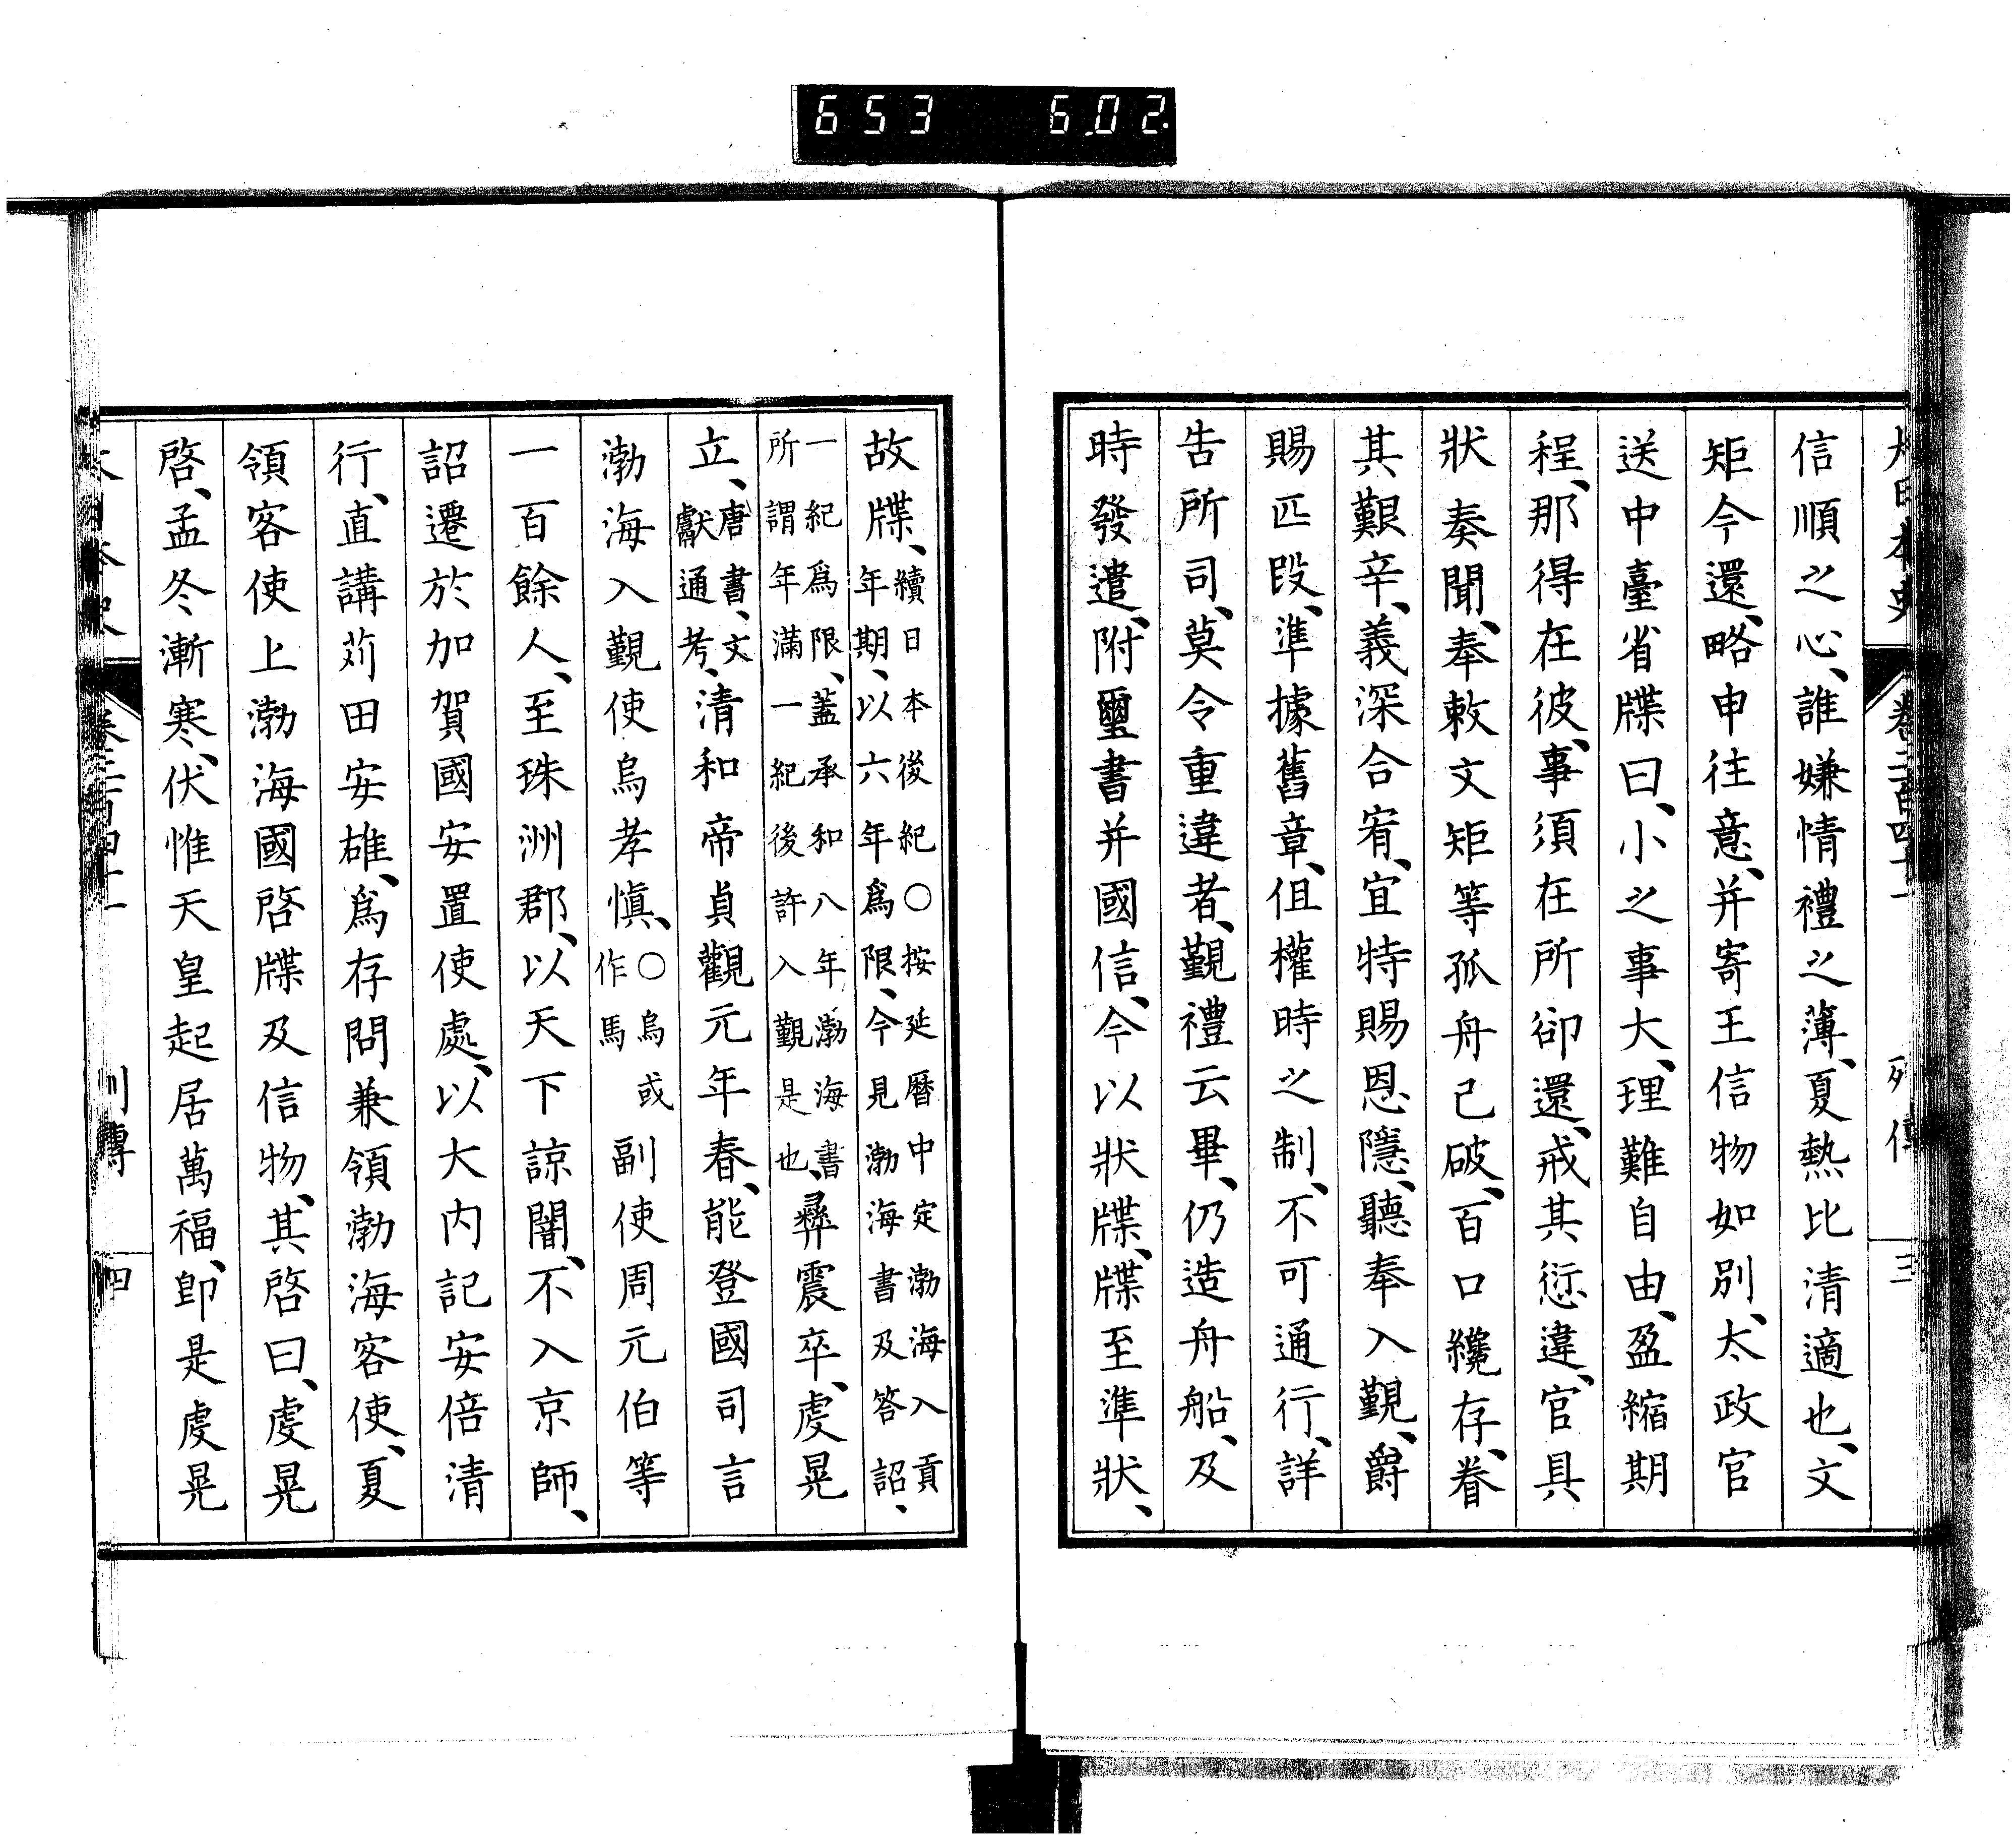 653 6.02.
信順之心、誰嫌情禮之薄、夏熱比清適也、文
矩今還、略申往意、并寄王信物如別、太政官
送中臺省牒曰、小之事大、理難自由、盈縮期
程、那得在彼、事須在所卻還、戒其愆違、官具
狀奏聞、奉敕文矩等孤舟已破、百口纔存、眷
其艱辛、義深合宥、宜特賜恩隱、聽奉入覲、爵
賜匹段、準據舊章、但權時之制、不可通行、詳
告所司、莫令重違者、覲禮云畢、仍造舟船、及
時發遣、附璽書并國信、今以狀牒、牒至準狀、
故牒、續日本後紀○按延曆中定渤海入貢
年期、以六年爲限、今見渤海書及答詔、
一紀爲限、蓋承和八年渤海書
所謂年滿一紀後許入覲是也、彝震卒、虔晃
立、唐書、文
獻通考、清和帝貞觀元年春、能登國司言
渤海入覲使烏孝愼、○烏或
作馬副使周元伯等
一百餘人、至珠洲郡、以天下諒闇、不入京師、
詔遷於加賀國安置使處、以大内記安倍清
行、直講苅田安雄、爲存問兼領渤海客使、夏
領客使上渤海國啓牒及信物、其啓曰、虔晃
啓、孟冬漸寒、伏惟天皇起居萬福、卽是虔晃